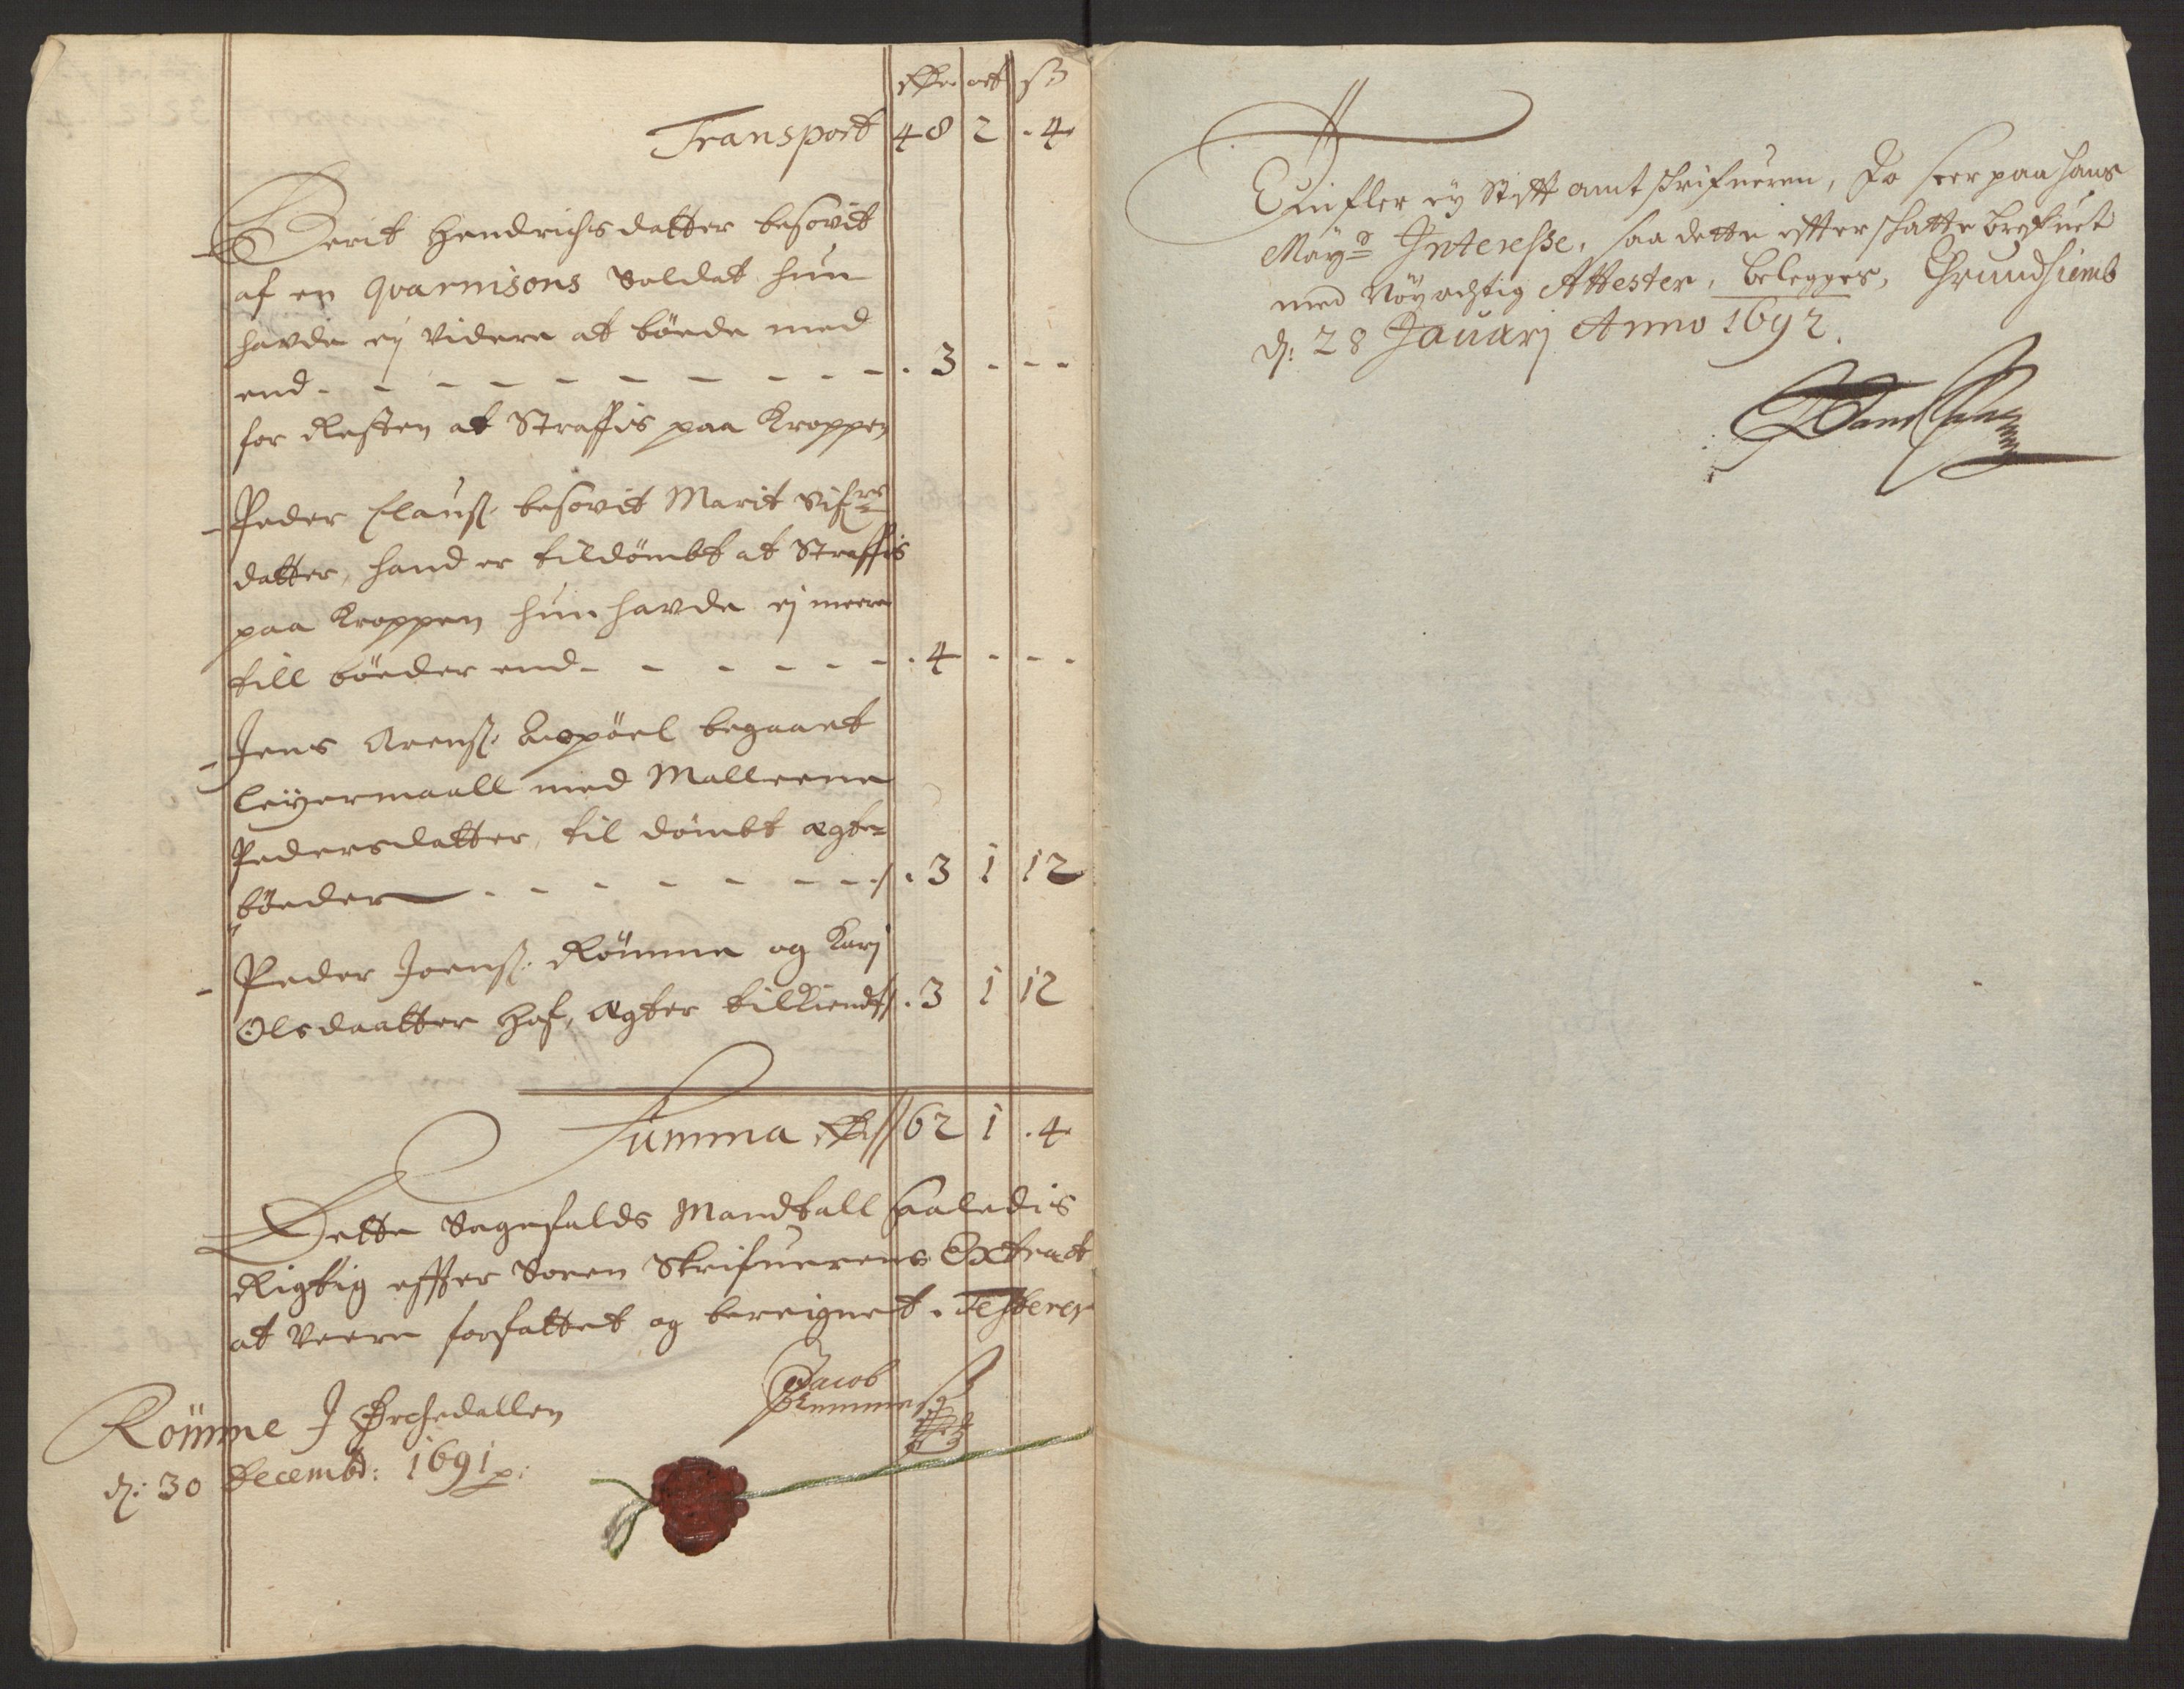 Rdr ort ß
Transport 48 2 . 4
Berit Hendrichsdatter besovit
af en Qvarnisons Soldat hun
havde ej videre at bøede med
end - - - - - - - - - . 3 - - -
for Resten at Straffis paa Kroppen
Peder Clauß. besovit Marit
datter, hand er tildømbt at Straffis
paa Kroppen hun havde ej meere
till bøeder end - - - - - . 4 - - -
Jens Arenß. begaaet
leyermaall med Malleene
Pedersdatter, til dømbt ægte-
bøeder - - - - - - - . 3 1 12
Peder Joenß. Rømme og Karj
Olsdaatter Hof, ægter tilkiendt . 3 1 12
Summa Rdr 62 1 . 4
Dette Sagefalds Mandtall saaledis
Rigtig effter Soren Skrifuerens Extract
at veere forfattet og bereignet. Testerer
Rømme J Orchedallen
d: 30 Decembr: 1691 p:
Jacob
Ejn Stift amtschrifueren, Jo seer paa hans
Mayts Interesse, saa dette effterschatte brefuet
med Nöyachtig Attester, belegges,
d: 28 Januarj Anno 1692.